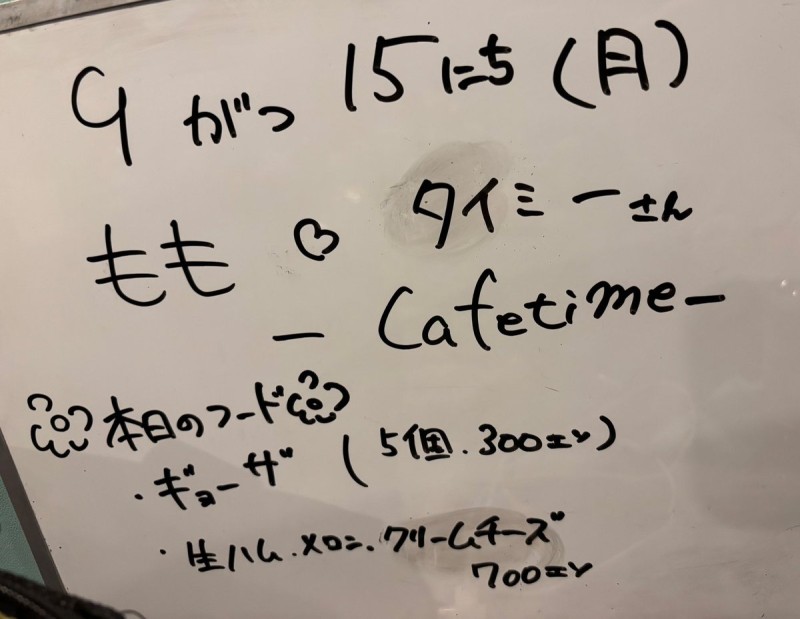 9がつ 15にち (月)
もも ♡ タイミーさん
– Cafetime –
本日のフード
・ギョーザ (5個.300エン)
・生ハム.メロン.クリームチーズ
700エン